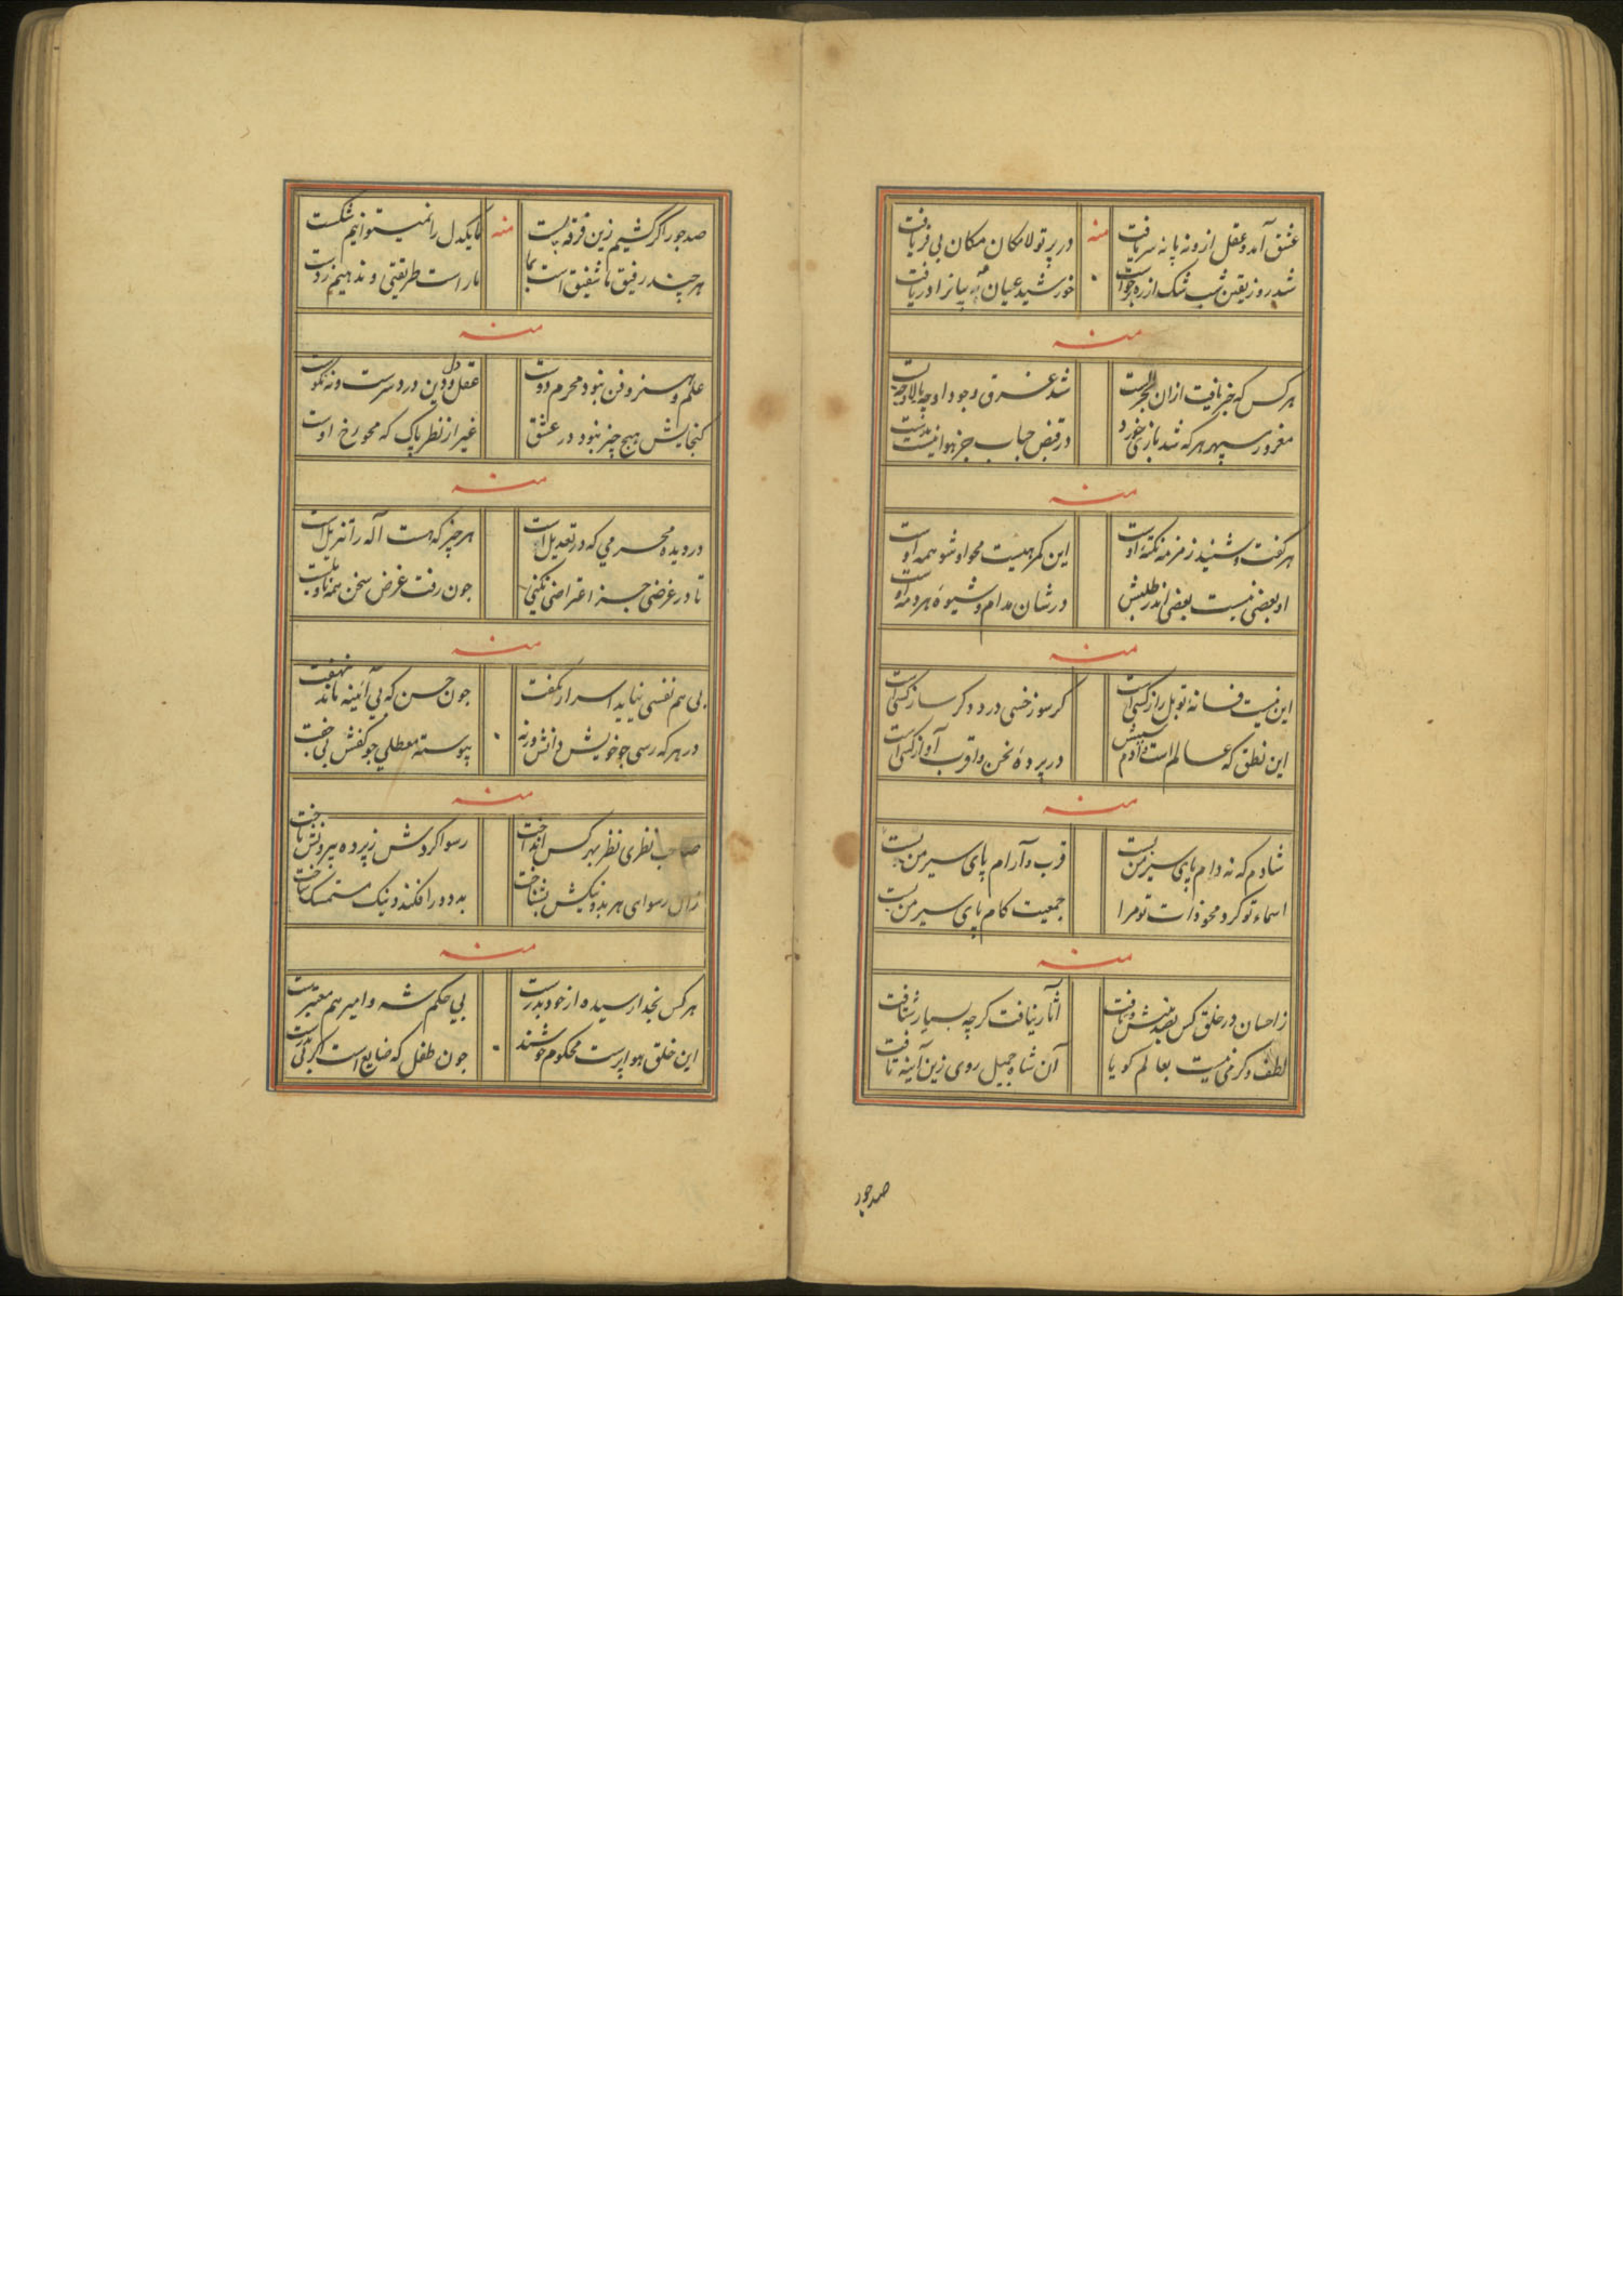 عشق آمد و عقل ازو نه پا نه سر یافت
منه
در پرتو لامکان مکان بی فر یافت
شد روز یقین شب شک از ره برخواست
خورشید عیان بیانرا دریافت
منه
هر کس که خبر یافت ازان
شد غرق وجود او چه بالا و چه پست
مغرور سپهر هر که شد بازی خورد
در قبض حباب جز هوا نیست بدست
منه
هر گفت و شنید زمزمه نکتهٔ اوست
این کم هییت محو او شو همه اوست
او بعضی نیست بعضی اندر طلبش
در شان مدام و شیوهٔ هر دمه اوست
منه
این نیست فسانهٔ تو بل راز کسی است
کر سوز خسی در د و کر ساز کسی است
این نطق که عالم است و آدم پیشش
در پردهٔ نحن و اقرب آواز کسی است
منه
شادم که نه دام پای سیر من بست
قرب و آرام پای سیر من بست
اسماء تو کرد محو ذات تو مرا
جمعیت کام پای سیر من بست
منه
ز احسان در خلق کس بصد بینش و یافت
آثار نیافت کرچه بسیار شتافت
لطف و کرمی نیست بعالم کویا
آن شاه جمیل روی زین آینه تافت
صد جور
صد جور اکر کشیم زین فرقه پست
منه
ما یکدل را نمیتوانیم شکست
هر چند رفیق نا شفیق است بما
ما راست طریقتی و ندهیم ز دست
منه
علم و هنر و فن نبود محرم دوست
عقل و دل و دین در دسرست و نه نکوست
کنجایش هیچ چیز نبود در عشق
غیر از نظر پاک که محو رخ اوست
منه
در دیده محرمی که در تعدیل است
هر چیز که هست آله را تنزیل است
تا در غرضی جز اعتراضی نکنی
چون رفت غرض سخن همه تاویل است
منه
بی هم نفسی نیاید اسرار بکفت
چون حسن که بی آئینه ماند بنهفت
در هر که رسی چو خویش دانش ورنه
پیوسته معطلی چو کفش بی جفت
منه
صاحب نظری نظر بهر کس انداخت
رسوا کردش ز پرده بیرونش تاخت
زان رسوای هر بد و نیکش بشناخت
بد دور افکند و نیک مستمسک ساخت
منه
هر کس بخدا رسیده از خود بدرست
بی حکم شه و امیر هم معتبرست
این خلق هوا پرست محکوم خوشند
چون طفل که ضایع است اکر بی پدرست